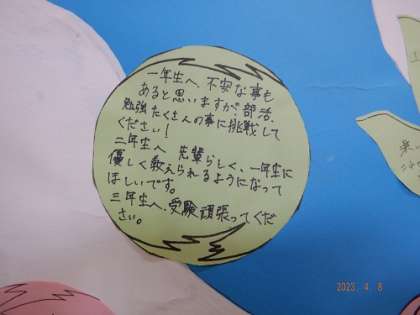 一年生へ 不安な事も
あると思いますが部活、
勉強たくさんの事に挑戦して
ください!
二年生へ 先輩らしく、一年生に
優しく教えられるようになって
ほしいです。
三年生へ.受験頑張ってくだ
さい。
2023. 4. 8